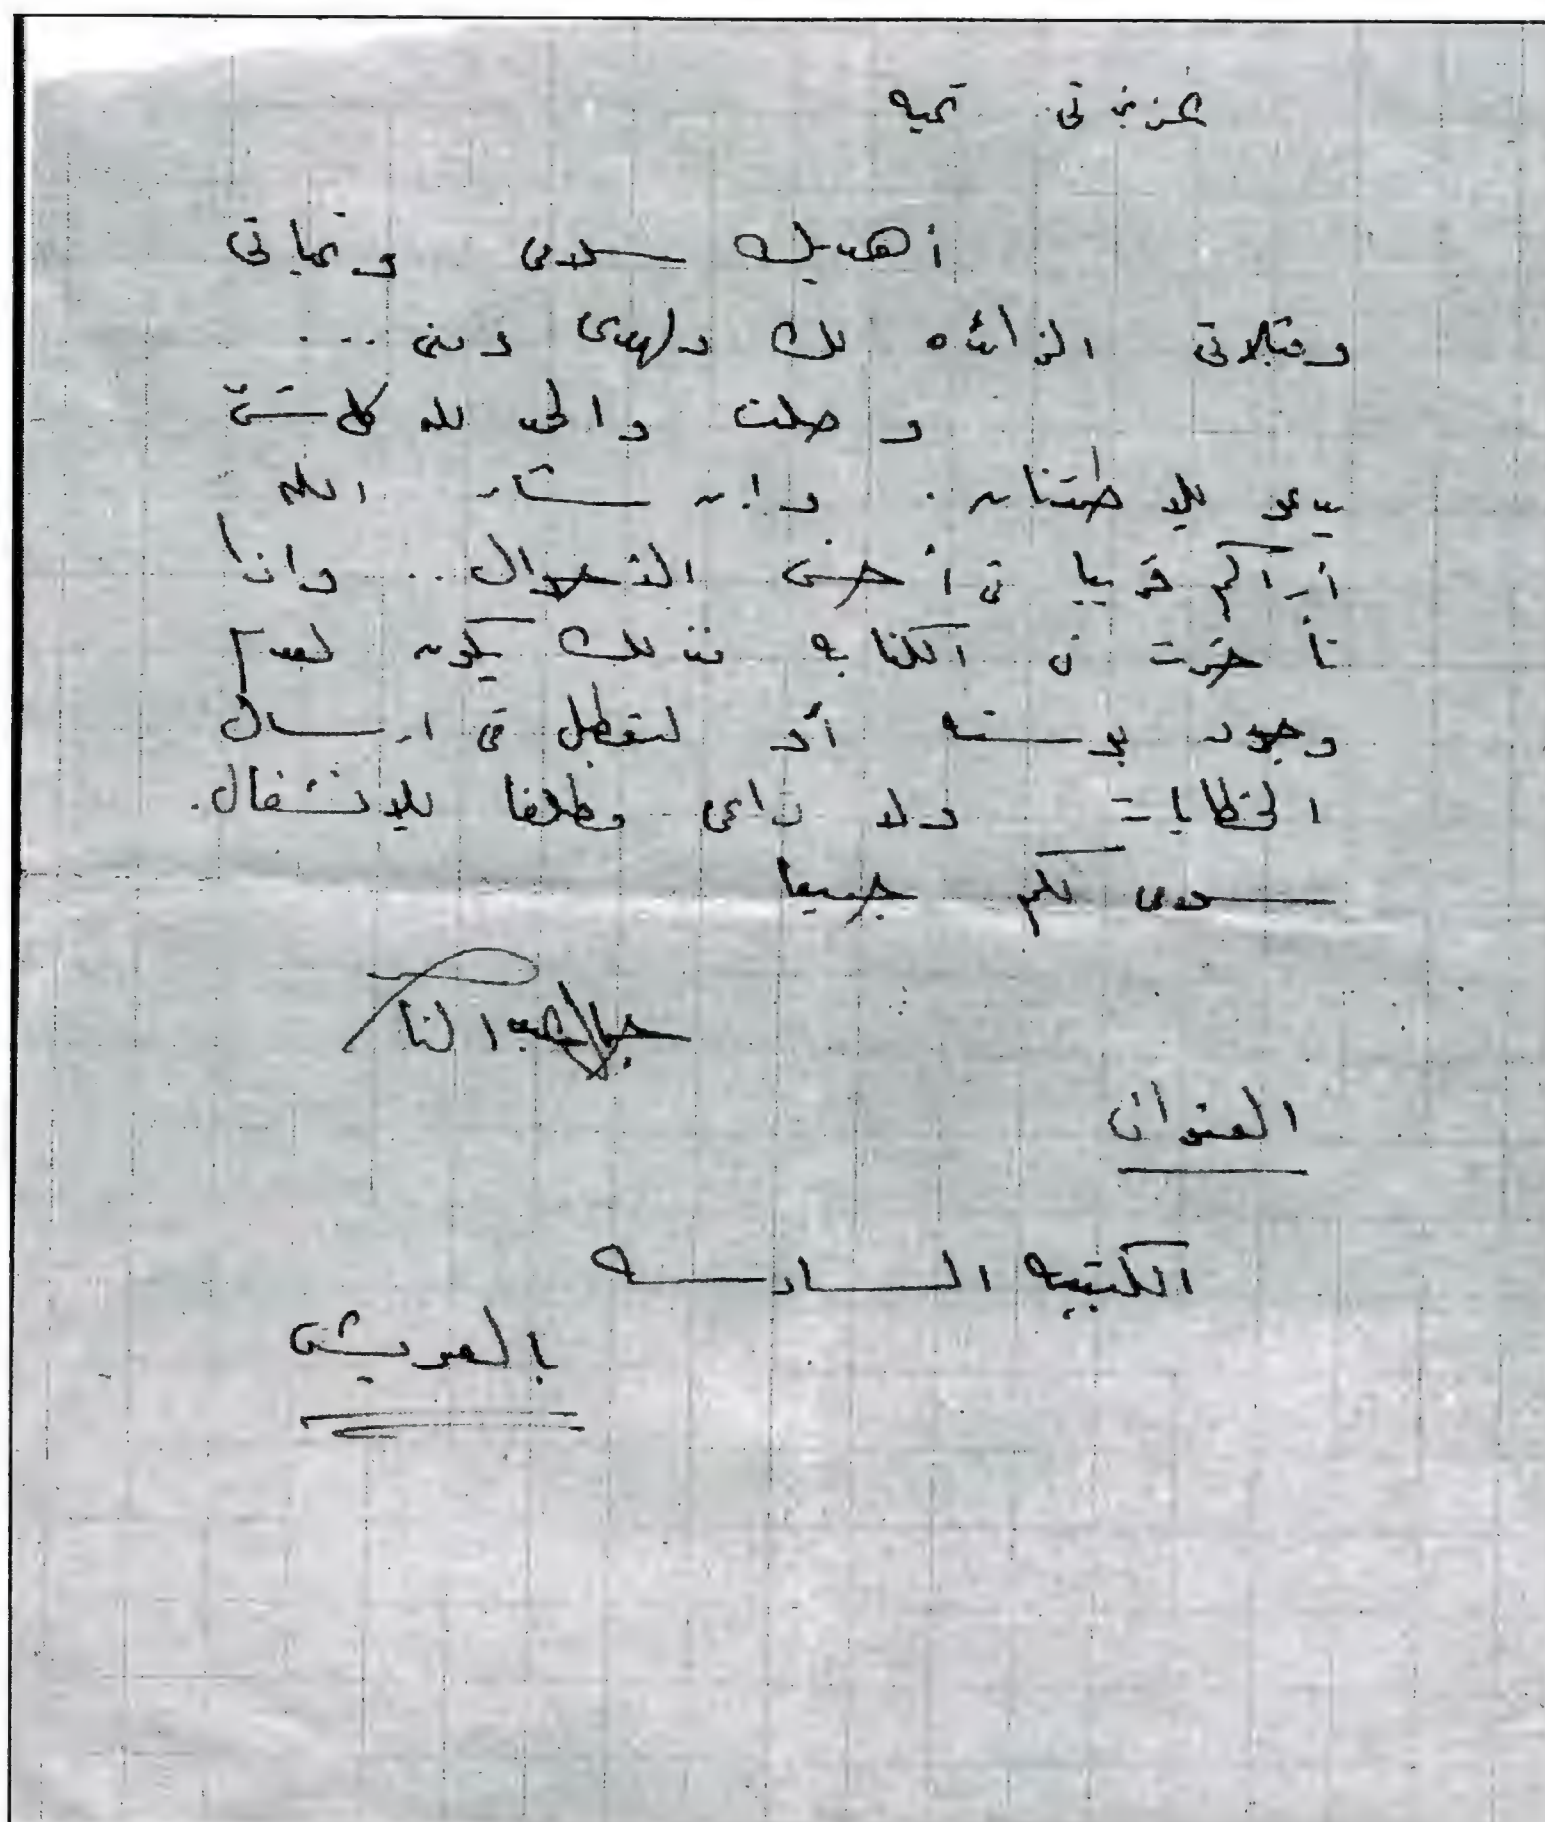 عزيزتى تحيه
أهديك سلامى وتحياتى
وقبلاتى الزائده لك ولهدى ومنى ...
وصلت والحمد لله كل شئ
يدعو للاطمئنان . وان شاء الله
أراكم قريبا فى أحسن الأحوال .. واذا
تأخرت فى الكتابه فذلك يكون لعدم
وجود بوسته أو لتعطيل فى ارسال
الخطابات ولا داعى مطلقا للانشغال .
سلامى لكم جميعا
جمال عبد الناصر
العنوان
الكتيبه السادسه
بالعريش